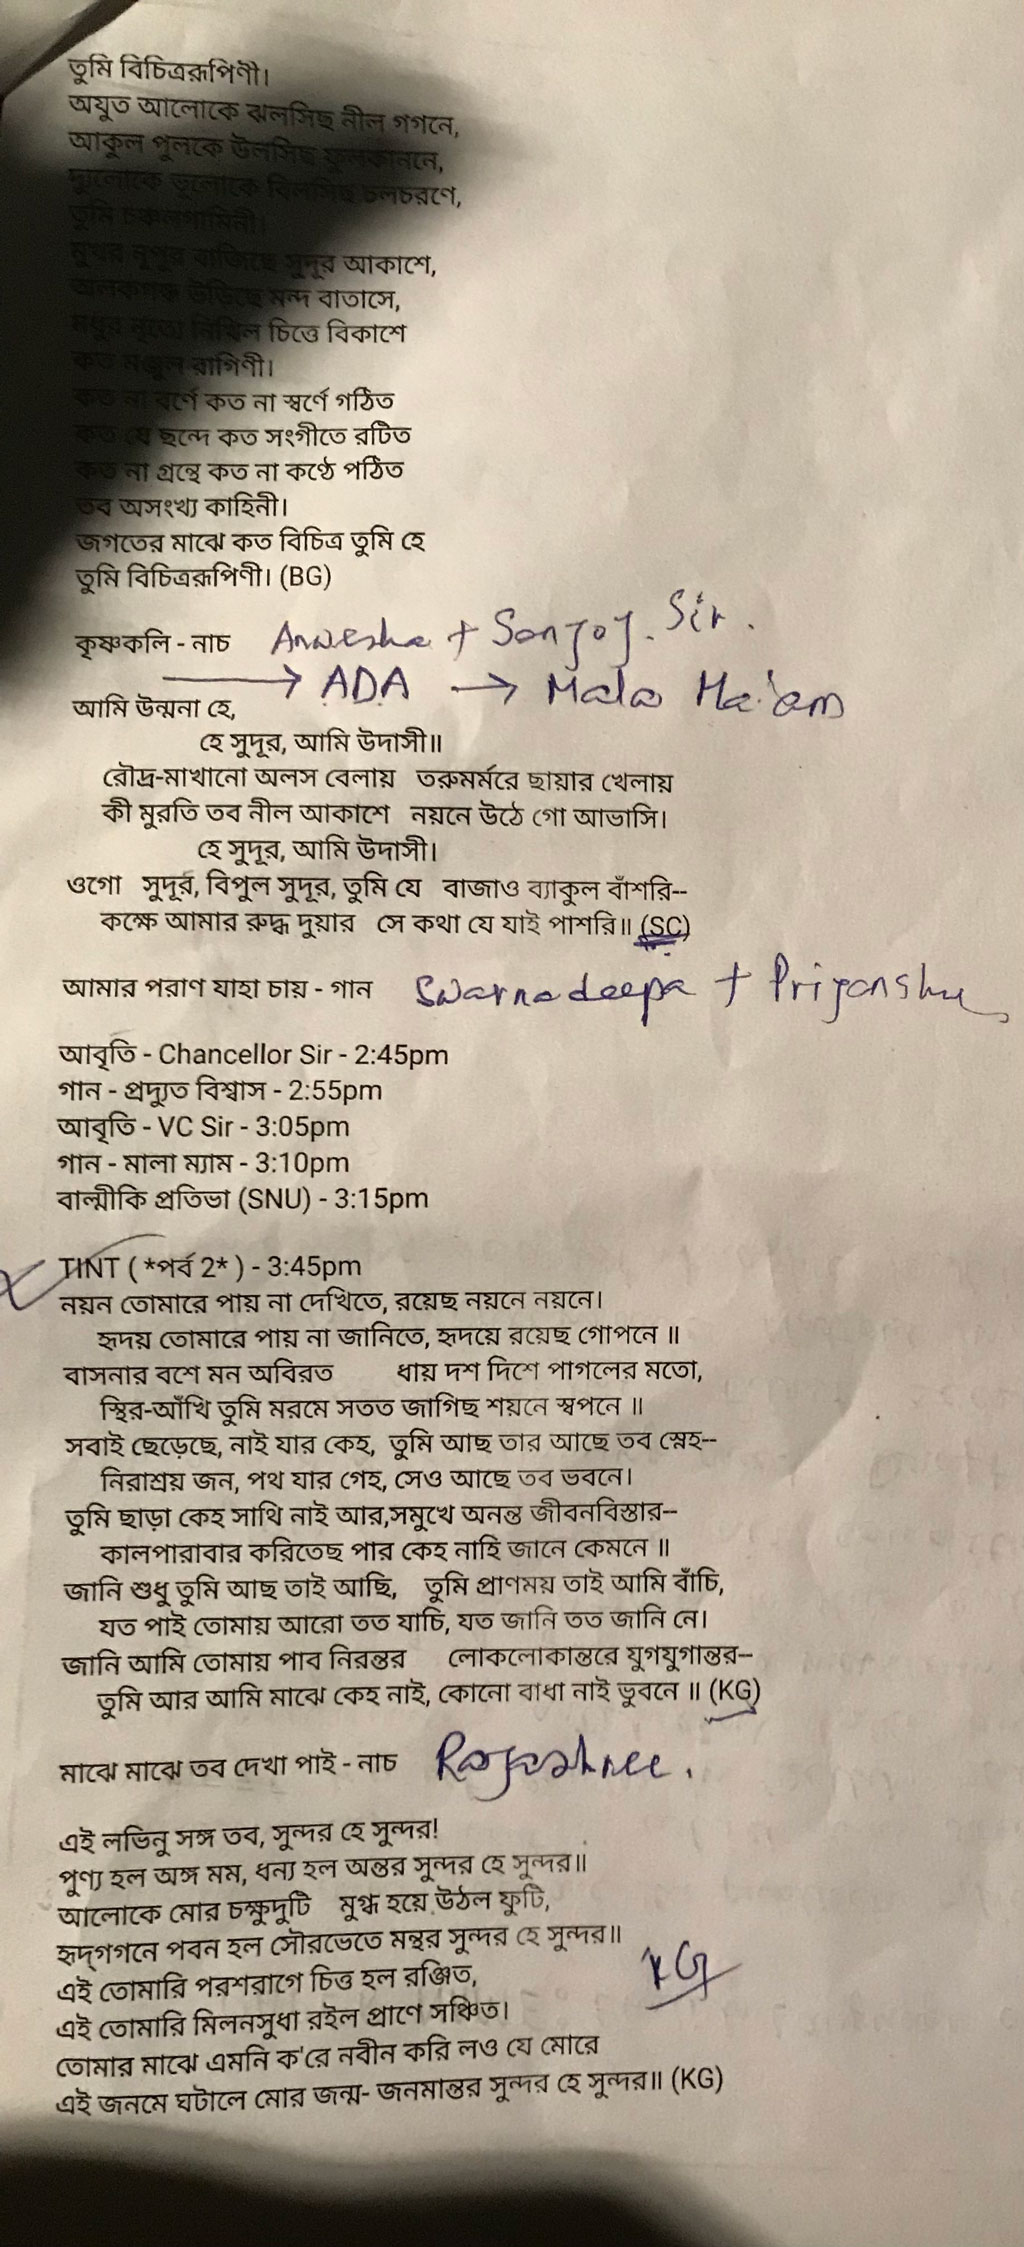 তুমি বিচিত্ররূপিণী।
অযুত আলোকে ঝলসিছ নীল গগনে,
আকুল পুলকে উলসিছ ফুলকাননে,
দ্যুলোকে ভূলোকে বিলসিছ চলচরণে,
তুমি
সুদূর আকাশে,
উড়িছে মন্দ বাতাসে,
নিখিল চিত্তে বিকাশে
কত মঞ্জুল রাগিণী।
কত না বর্ণে কত না স্বর্ণে গঠিত
কত যে ছন্দে কত সংগীতে রটিত
কত না গ্রন্থে কত না কণ্ঠে পঠিত
তব অসংখ্য কাহিনী।
জগতের মাঝে কত বিচিত্র তুমি হে
তুমি বিচিত্ররূপিণী। (BG)
কৃষ্ণকলি - নাচ Anwesha + Sanjoy. Sir.
→ ADA → Mala Ma'am
আমি উন্মনা হে,
হে সুদূর, আমি উদাসী॥
রৌদ্র-মাখানো অলস বেলায় তরুমর্মরে ছায়ার খেলায়
কী মুরতি তব নীল আকাশে নয়নে উঠে গো আভাসি।
হে সুদূর, আমি উদাসী।
ওগো সুদূর, বিপুল সুদূর, তুমি যে বাজাও ব্যাকুল বাঁশরি--
কক্ষে আমার রুদ্ধ দুয়ার সে কথা যে যাই পাশরি॥ (SC)
আমার পরাণ যাহা চায় - গান Swarnadeepa + Priyanshu
আবৃতি - Chancellor Sir - 2:45pm
গান - প্রদ্যুত বিশ্বাস - 2:55pm
আবৃতি - VC Sir - 3:05pm
গান - মালা ম্যাম - 3:10pm
বাল্মীকি প্রতিভা (SNU) - 3:15pm
TINT ( *পর্ব 2* ) - 3:45pm
নয়ন তোমারে পায় না দেখিতে, রয়েছ নয়নে নয়নে।
হৃদয় তোমারে পায় না জানিতে, হৃদয়ে রয়েছ গোপনে ॥
বাসনার বশে মন অবিরত ধায় দশ দিশে পাগলের মতো,
স্থির-আঁখি তুমি মরমে সতত জাগিছ শয়নে স্বপনে ॥
সবাই ছেড়েছে, নাই যার কেহ, তুমি আছ তার আছে তব স্নেহ--
নিরাশ্রয় জন, পথ যার গেহ, সেও আছে তব ভবনে।
তুমি ছাড়া কেহ সাথি নাই আর,সমুখে অনন্ত জীবনবিস্তার--
কালপারাবার করিতেছ পার কেহ নাহি জানে কেমনে ॥
জানি শুধু তুমি আছ তাই আছি, তুমি প্রাণময় তাই আমি বাঁচি,
যত পাই তোমায় আরো তত যাচি, যত জানি তত জানি নে।
জানি আমি তোমায় পাব নিরন্তর লোকলোকান্তরে যুগযুগান্তর--
তুমি আর আমি মাঝে কেহ নাই, কোনো বাধা নাই ভুবনে ॥ (KG)
মাঝে মাঝে তব দেখা পাই - নাচ Rajashree.
এই লভিনু সঙ্গ তব, সুন্দর হে সুন্দর!
পুণ্য হল অঙ্গ মম, ধন্য হল অন্তর সুন্দর হে সুন্দর॥
আলোকে মোর চক্ষুদুটি মুগ্ধ হয়ে উঠল ফুটি,
হৃদ্‌গগনে পবন হল সৌরভেতে মন্থর সুন্দর হে সুন্দর॥
KG
এই তোমারি পরশরাগে চিত্ত হল রঞ্জিত,
এই তোমারি মিলনসুধা রইল প্রাণে সঞ্চিত।
তোমার মাঝে এমনি ক'রে নবীন করি লও যে মোরে
এই জনমে ঘটালে মোর জন্ম- জনমান্তর সুন্দর হে সুন্দর॥ (KG)